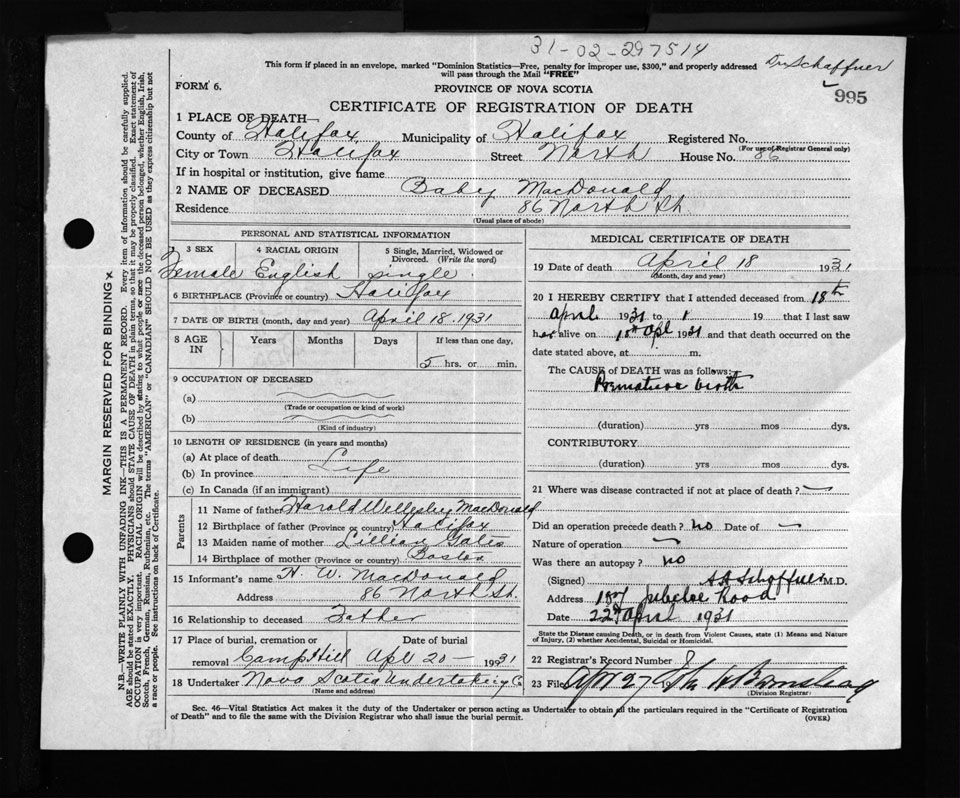 31-02-297514
This form if placed in an envelope, marked "Dominion Statistics—Free, penalty for improper use, $300," and properly addressed
will pass through the Mail "FREE"
Dr Schaffner
FORM 6.
PROVINCE OF NOVA SCOTIA
995
CERTIFICATE OF REGISTRATION OF DEATH
1 PLACE OF DEATH—
County of Halifax Municipality of Halifax Registered No.
(For use of Registrar General only)
City or Town Halifax Street North House No. 86
If in hospital or institution, give name
2 NAME OF DECEASED Baby MacDonald
Residence 86 North St.
(Usual place of abode)
PERSONAL AND STATISTICAL INFORMATION
3 SEX 4 RACIAL ORIGIN 5 Single, Married, Widowed or
Divorced. (Write the word)
Female English single
6 BIRTHPLACE (Province or country) Halifax
7 DATE OF BIRTH (month, day and year) April 18. 1931
8 AGE IN Years Months Days If less than one day,
5 hrs. or min.
9 OCCUPATION OF DECEASED
(a)
(Trade or occupation or kind of work)
(b)
(Kind of industry)
10 LENGTH OF RESIDENCE (in years and months)
(a) At place of death Life
(b) In province
(c) In Canada (if an immigrant)
Parents
11 Name of father Harold Wellesley MacDonald
12 Birthplace of father (Province or country) Halifax
13 Maiden name of mother Lillian Gates
14 Birthplace of mother (Province or country) Boston
15 Informant's name H. W. MacDonald
Address 86 North St.
16 Relationship to deceased Father
17 Place of burial, cremation or Date of burial
removal Camp Hill Apl 20— 1931
18 Undertaker Nova Scotia Undertaking Co
(Name and address)
MEDICAL CERTIFICATE OF DEATH
19 Date of death April 18 1931
(Month, day and year)
20 I HEREBY CERTIFY that I attended deceased from 18th
April 1931 to 19 that I last saw
her alive on 18th Apl 1931 and that death occurred on the
date stated above, at m.
The CAUSE of DEATH was as follows:
Premature birth
(duration) yrs mos dys.
CONTRIBUTORY
(duration) yrs mos dys.
21 Where was disease contracted if not at place of death?
Did an operation precede death? no Date of
Nature of operation
Was there an autopsy? no
(Signed) A R Schaffner M.D.
Address Jubilee Road
Date 22nd April 1931
State the Disease causing Death, or in death from Violent Causes, state (1) Means and Nature
of Injury, (2) whether Accidental, Suicidal or Homicidal.
22 Registrar's Record Number
23 Filed Apr 27
(Division Registrar)
Sec. 46—Vital Statistics Act makes it the duty of the Undertaker or person acting as Undertaker to obtain all the particulars required in the "Certificate of Registration
of Death" and to file the same with the Division Registrar who shall issue the burial permit. (OVER)
MARGIN RESERVED FOR BINDING
N.B.—WRITE PLAINLY WITH UNFADING INK—THIS IS A PERMANENT RECORD. Every item of information should be carefully supplied.
AGE should be stated EXACTLY. PHYSICIANS should STATE CAUSE OF DEATH in plain terms, so that it may be properly classified. Exact statement of
OCCUPATION is very important. RACIAL ORIGIN will be described by stating to what people or race the deceased person belonged, whether English, Irish,
Scotch, French, German, Russian, Ruthenian, etc. The terms "AMERICAN" or "CANADIAN" SHOULD NOT BE USED as they express citizenship but not
a race or people. See instructions on back of Certificate.